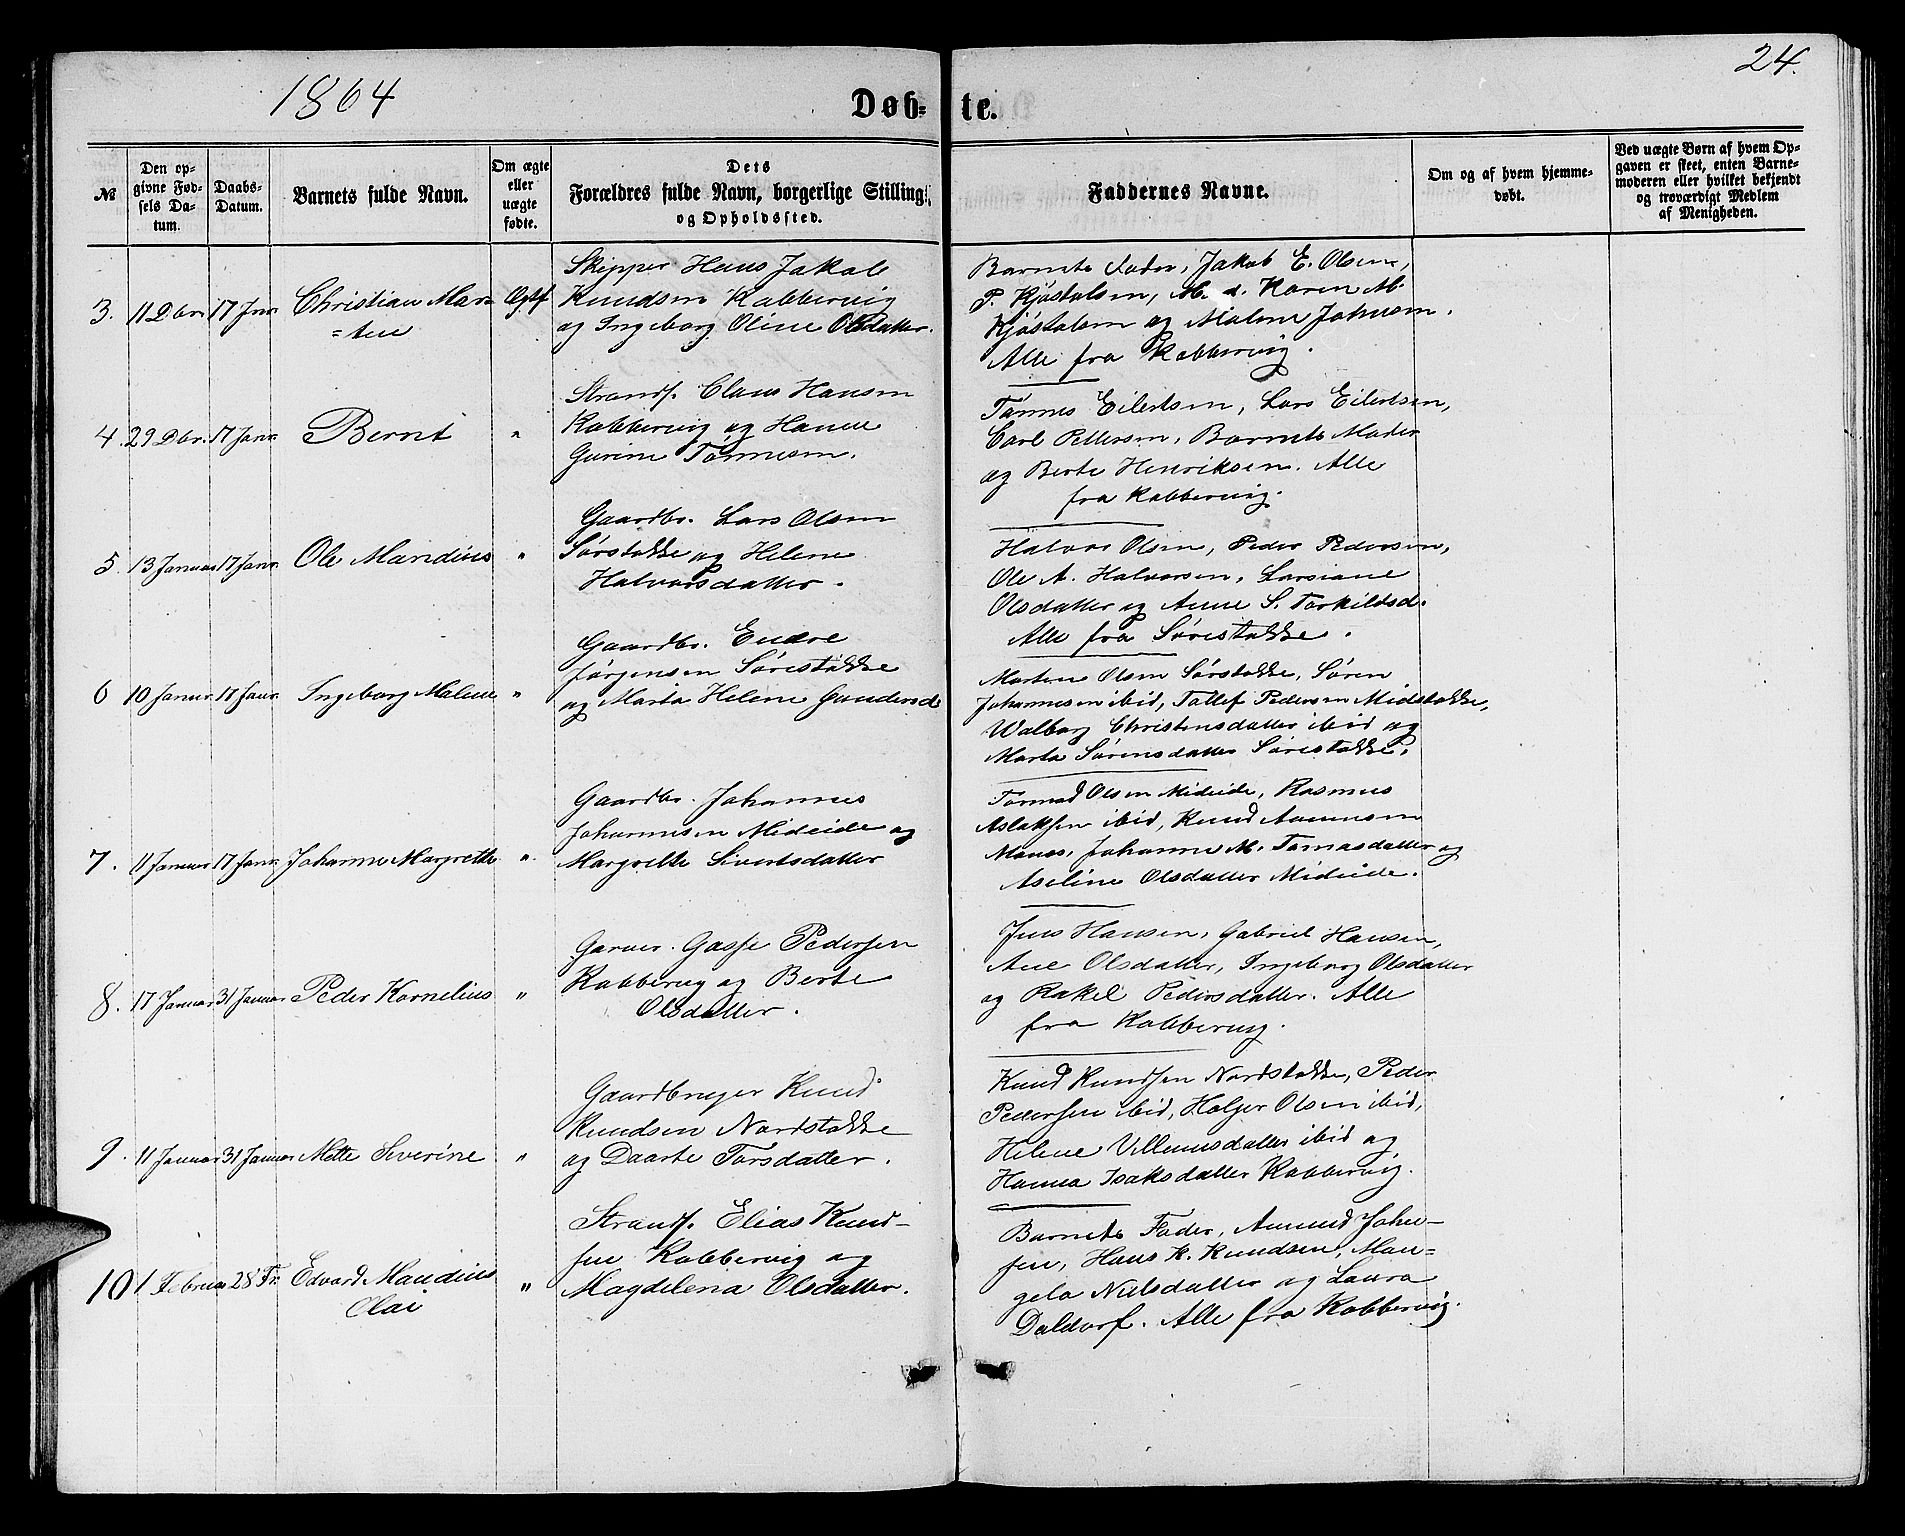 1864
Døb-
te.
24.
№
Den op-
givne Fød-
sels Da-
tum.
Daabs-
Datum.
Barnets fulde Navn.
Om ægte
eller
uægte
fødte.
Dets
Forældres fulde Navn, borgerlige Stilling,
og Opholdssted.
Faddernes Navne.
Om og af hvem hjemme-
døbt.
Ved uægte Børn af hvem Op-
gaven er skeet, enten Barne-
moderen eller hvilket bekjendt
og troværdigt Medlem
af Menigheden.
3. 11 Dbr. 17 Jnr. Christian Mar-
=ten
Skipper Hans Jakob
Knudsen Kobbervig
og Ingeborg Oline Olsdatter.
Barnets Fader, Jakob E. Olsen,
P. Kjøstolsen, Karen M.
Kjøstolsen og Malene Johnsen.
Alle fra Kobbervig.
4. 29 Dbr. 17 Janr. Bernt "
Strands. Claus Hansen
Kobbervig og Hanne
Gurine Tønnesen.
Tønnes Eilertsen, Lars Eilertsen,
Carl Pettersen, Barnets Moder
og Berte Henriksen. Alle
fra Kobbervig.
5. 13 Januar 17 Janr. Ole Mandius "
Gaardbr. Lars Olsen
Sørstokke og Helene
Halvorsdatter.
Halvor Olsen, Peder Pedersen,
Ole A. Halvorsen, Larsiane
Olsdatter og Anne S. Torkildsd.
Alle fra Sørestokke.
6 10 Januar. 17 Janr. Ingeborg Malene "
Gaardbr. Endre
Jørgensen Sørestokke
og Marta Helene Gundersd.
Martin Olsen Sørstokke, Søren
Johannesen ibid, Tollef Pedersen Midstokke,
Walborg Christensdatter ibid og
Marta Sørensdatter Sørestokke.
7. 11 Januar 17 Janr. Johanne Margrethe "
Gaardbr. Johannes
Johannesen Mideide og
Margrethe Sivertsdatter
Tormod Olsen Mideide, Rasmus
Aslaksen ibid, Knud Aanensen
Manes, Johanne M. Tomasdatter og
Aseline Olsdatter Mideide.
8. 17 Januar 31 Januar Peder Kornelius "
Garver. Gasse Pedersen
Kobbervig og Berte
Olsdatter.
Jens Hansen, Gabriel Hansen,
Ane Olsdatter, Ingeborg Olsdatter
og Rakel Pedersdatter. Alle
fra Kobbervig.
9. 11 Januar 31 Januar Mette Severine "
Gaardbruger Knud
Knudsen Nordstokke
og Daarte Torsdatter.
Knud Knudsen Nordstokke, Peder
Pedersen ibid, Holger Olsen ibid,
Helene Villumsdatter ibid og
Hanna Isaksdatter Kobbervig.
10 1 Februar 28 Fr. Edvard Mandius
Olai "
Strands. Elias Knud-
sen Kobbervig og
Magdelena Olsdatter.
Barnets Fader, Amund John-
sen, Hans K. Knudsen, Man=
gela Nielsdatter og Laura
Daldorf. Alle fra Kobbervig.